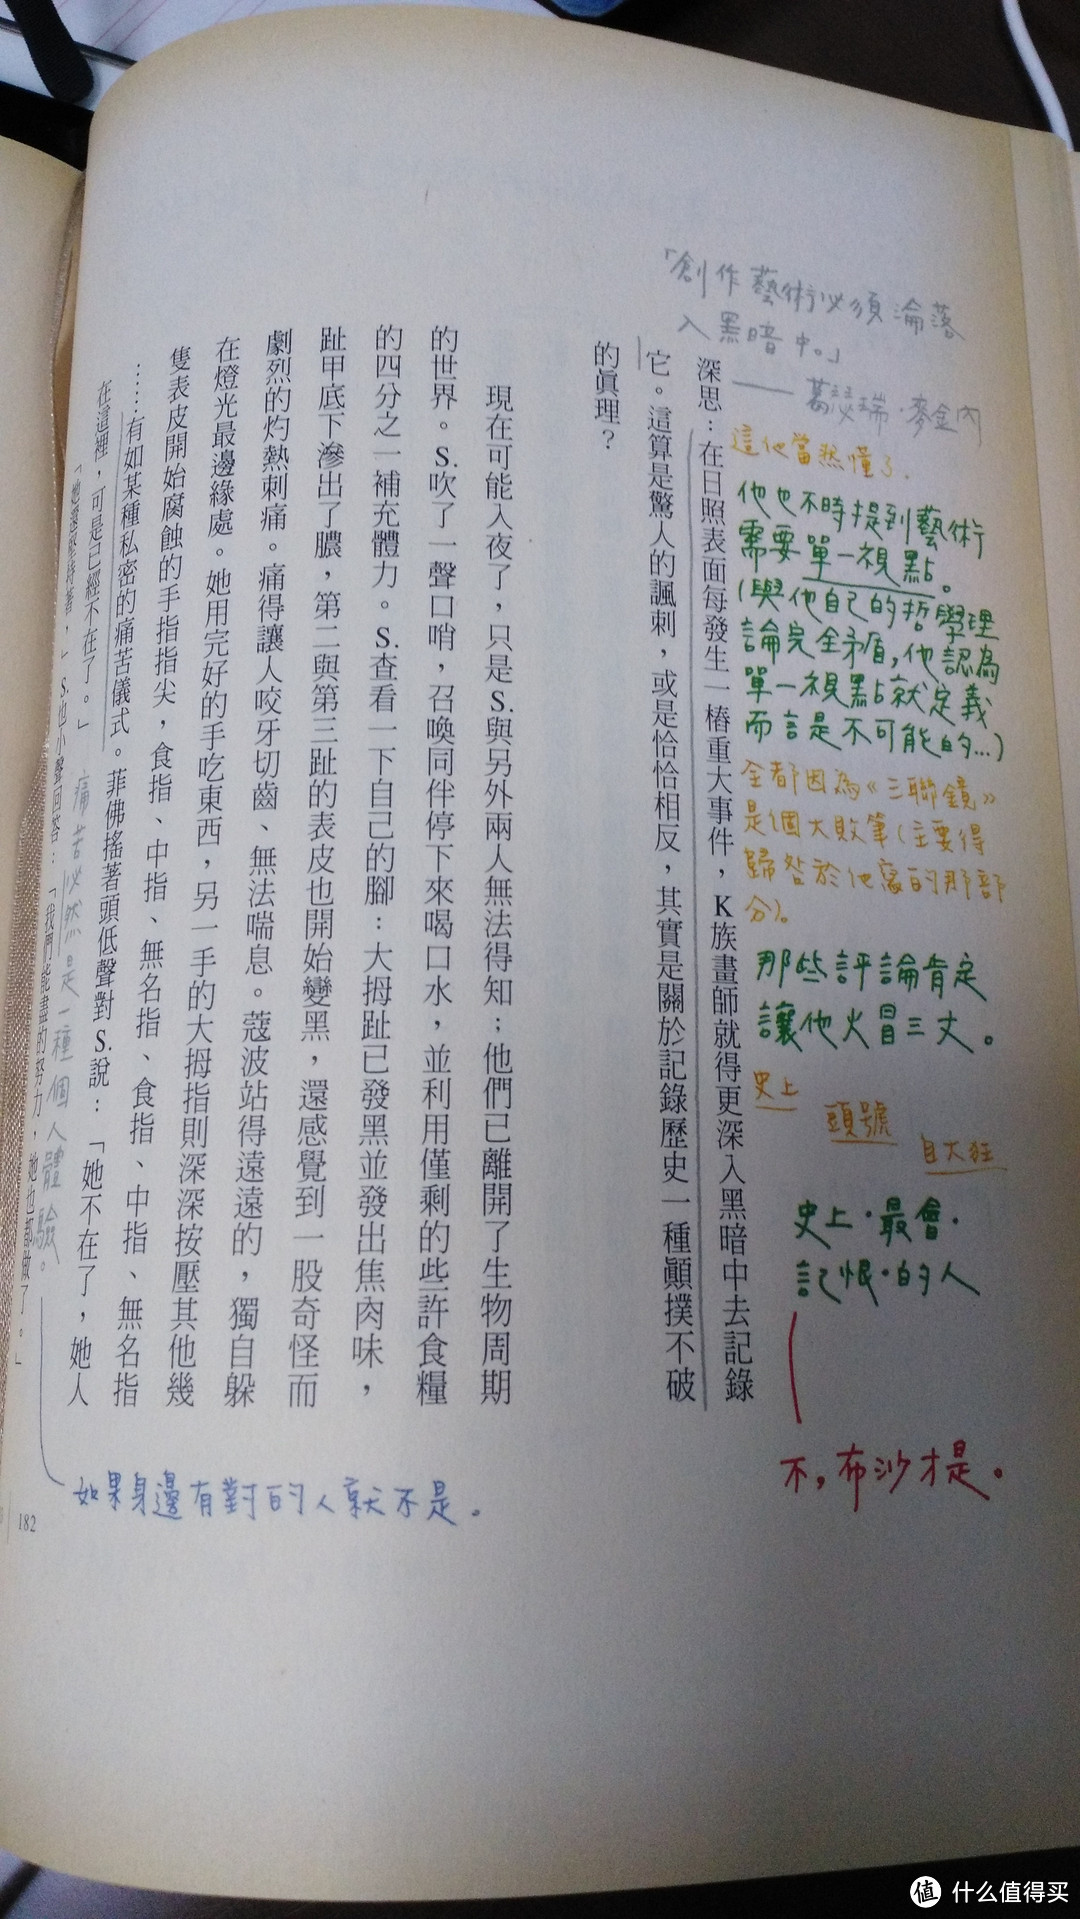 「創作藝術必須淪落
入黑暗中。」
——葛泌瑞·麥金內
這他當然懂了.
他也不時提到藝術
需要單一視點。
(與他自己的哲學理
論完全矛盾,他認為
單一視點就定義
而言是不可能的…)
全都因為《三聯鏡》
是個大敗筆(主要得
歸咎於他寫的那部
分)。
那些評論肯定
讓他火冒三丈。
史上
頭號
自大狂
史上·最會·
記恨·的人
不,布沙才是。
深思:在日照表面每發生一樁重大事件,K族畫師就得更深入黑暗中去記錄
它。這算是驚人的諷刺,或是恰恰相反,其實是關於記錄歷史一種顛撲不破
的真理?
現在可能入夜了,只是S.與另外兩人無法得知;他們已離開了生物周期
的世界。S.吹了一聲口哨,召喚同伴停下來喝口水,並利用僅剩的些許食糧
的四分之一補充體力。S.查看一下自己的腳:大拇趾已發黑並發出焦肉味,
趾甲底下滲出了膿,第二與第三趾的表皮也開始變黑,還感覺到一股奇怪而
劇烈的灼熱刺痛。痛得讓人咬牙切齒、無法喘息。蔻波站得遠遠的,獨自躲
在燈光最邊緣處。她用完好的手吃東西,另一手的大拇指則深深按壓其他幾
隻表皮開始腐蝕的手指指尖,食指、中指、無名指、食指、中指、無名指
……有如某種私密的痛苦儀式。菲佛搖著頭低聲對S.說:「她不在了,她人
在這裡,可是已經不在了。」
「她還堅持著,」S.也小聲回答:「我們能盡的努力,她也都做了。」
痛苦必然是一種個人體驗。
如果身邊有對的人就不是。
182
值 什么值得买